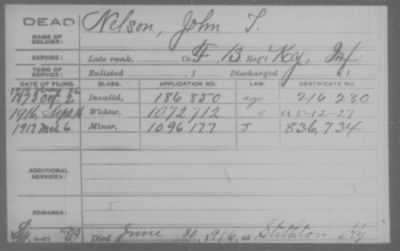 DEAD
Nelson, John T.
NAME OF SOLDIER:
SERVICE: Late rank, Co. F, 13 Reg't Ky. Inf.
TERM OF SERVICE: Enlisted , 1 Discharged , 1
DATE OF FILING. CLASS. APPLICATION NO. LAW. CERTIFICATE NO.
1873 Oct. 2 Invalid, 186 850 216 280
1916 Sept. Widow, 1072712 " a 5-12-27
1917 Mar 6 Minor, 1096177 J 836,734
ADDITIONAL SERVICES:
REMARKS:
Died June 1916, at Stithton Ky